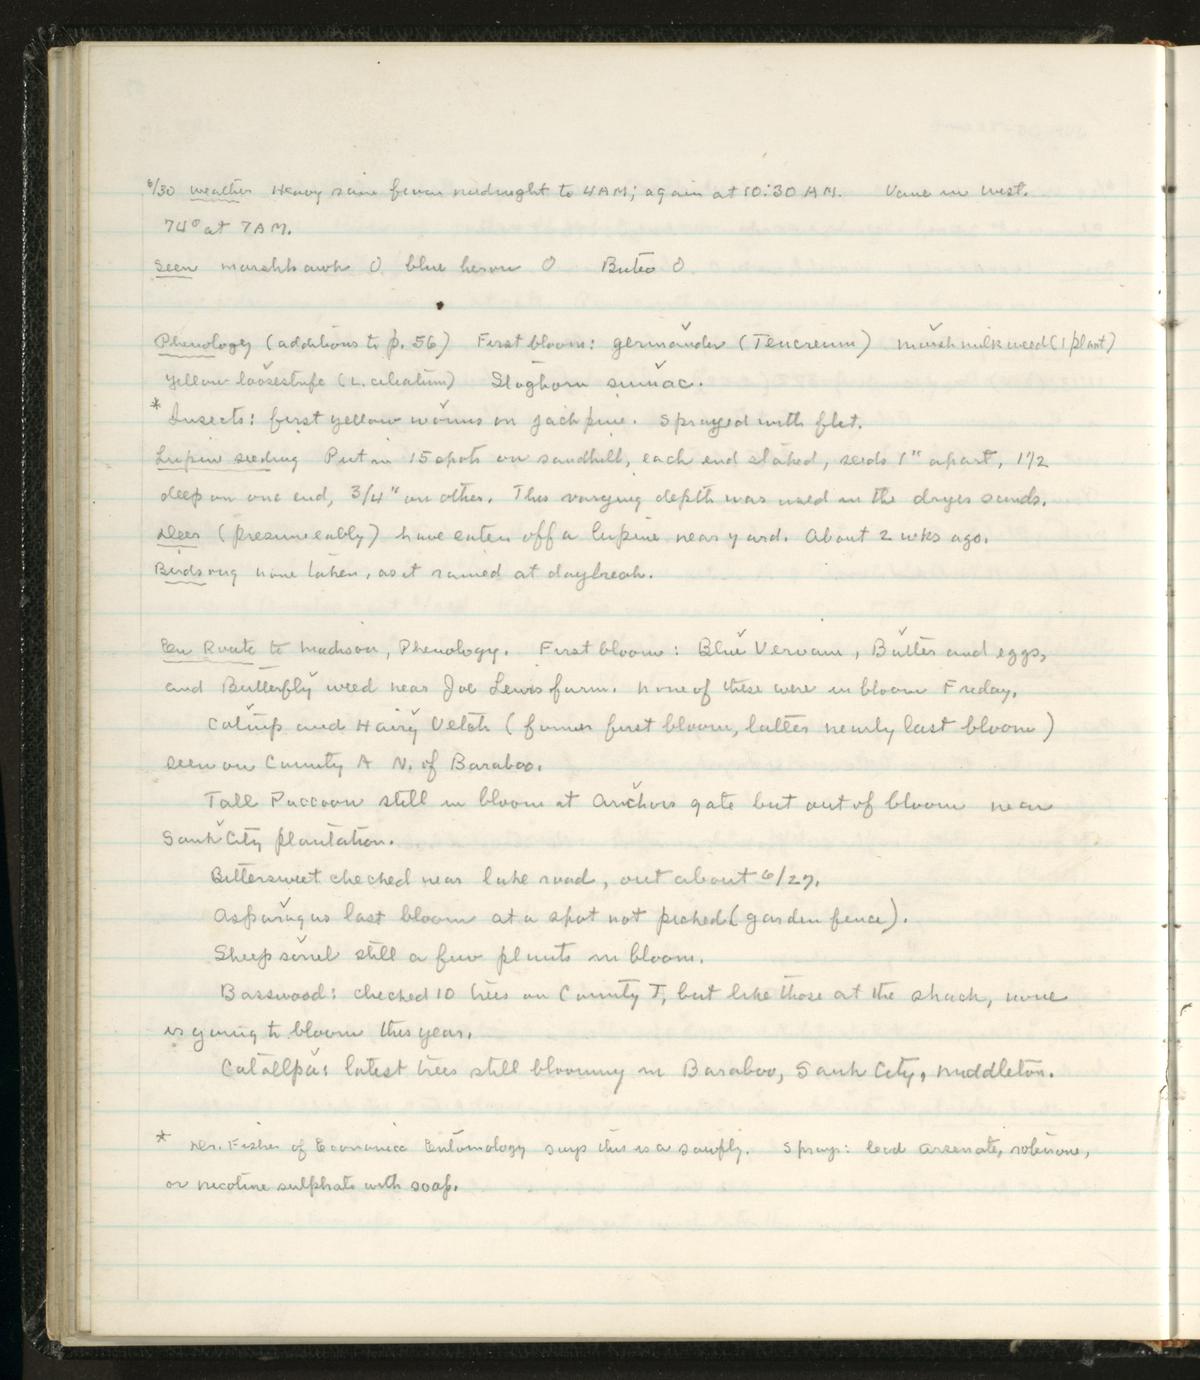 6/30 weather Heavy rain from midnight to 4 AM; again at 10:30 AM. Vane in west.
74° at 7 AM.
Seen marshhawk 0 blue heron 0 Buteo 0
Phenology (additions to p. 56) First bloom: germander (Teucreum) Marsh milkweed (1 plant)
Yellow loosestrife (L. ciliatum) Staghorn sumac.
* Insects: first yellow worms on jackpine. Sprayed with flit.
Lupine seeding Put in 15 spots on sandhill, each end staked, seeds 1" apart, 1/2
deep on one end, 3/4" on other. This varying depth was used in the dryer sands.
Deer (presumeably) have eaten off a lupine near yard. About 2 wks ago.
Birdsong none taken, as it rained at daybreak.
En Route to Madison, Phenology. First bloom: Blue Vervain, Butter and eggs,
and Butterfly weed near Joe Lewis farm. None of these were in bloom Friday.
Catnip and Hairy Vetch (former first bloom, latter nearly last bloom)
seen on County A N. of Baraboo.
Tall Puccoon still in bloom at Anchors gate but out of bloom near
Sauk City plantation.
Bittersweet checked near lake road, out about 6/27.
Asparagus last bloom at a spot not picked (garden fence).
Sheep sorrel still a few plants in bloom.
Basswood: checked 10 trees on County T, but like those at the shack, none
is going to bloom this year.
Catallpa: latest trees still blooming in Baraboo, Sauk City, Middleton.
* Dr. Fisher of Economic Entomology says this is a sawfly. Sprays: lead arsenate, rotenone,
or nicotine sulphate with soap.